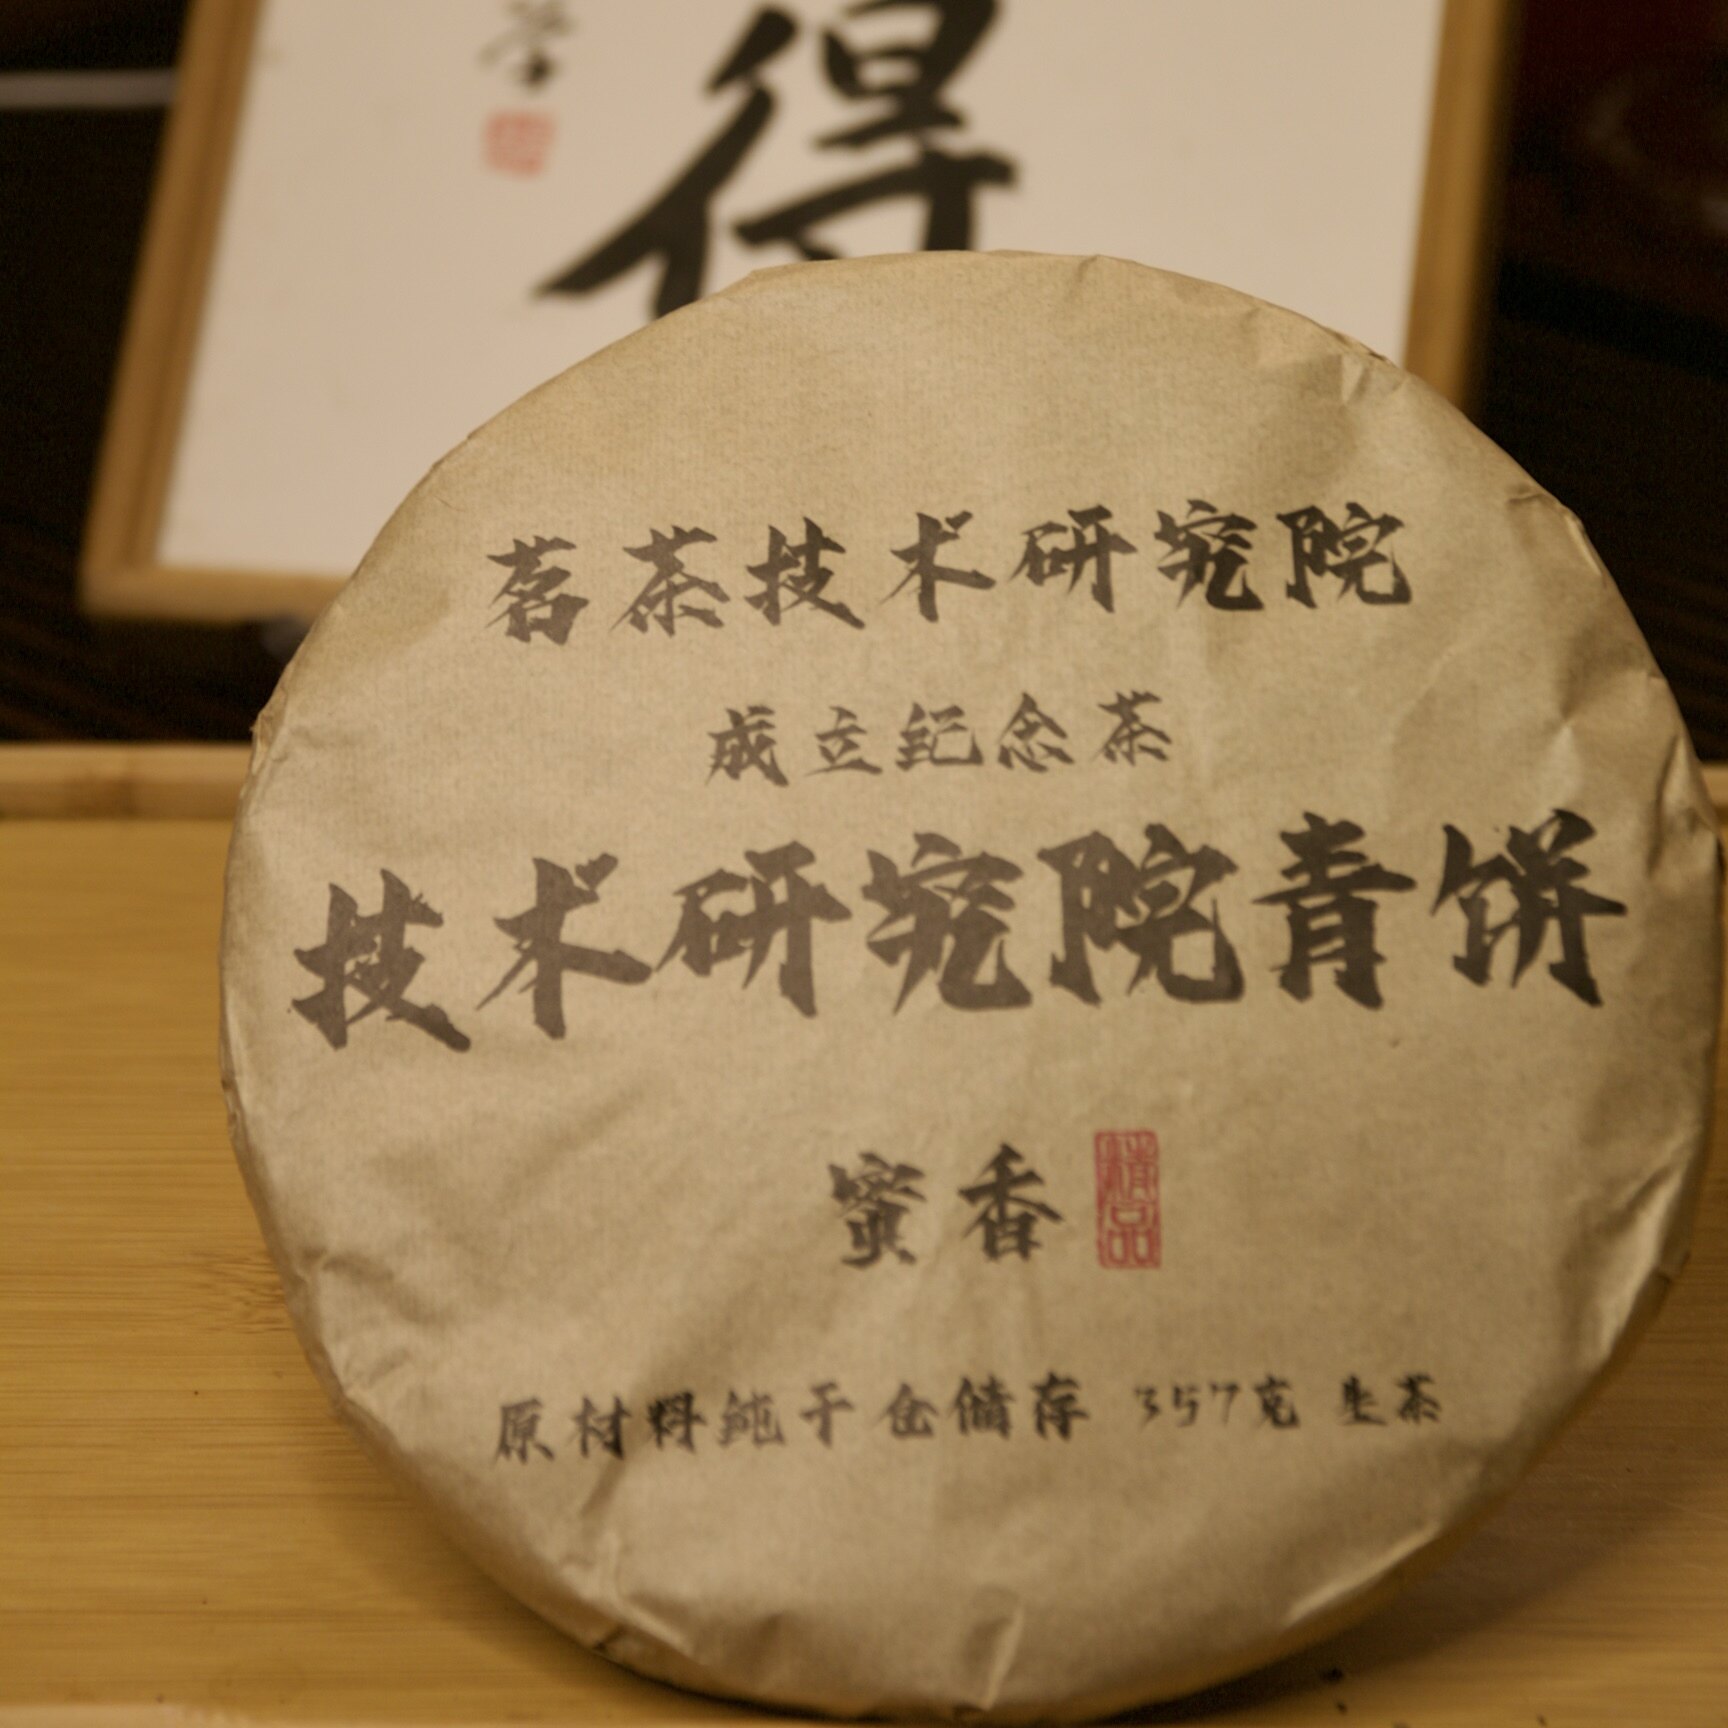 得
茗茶技术研究院
成立纪念茶
技术研究院青饼
蜜香
精品
原材料纯干仓储存 357克 生茶